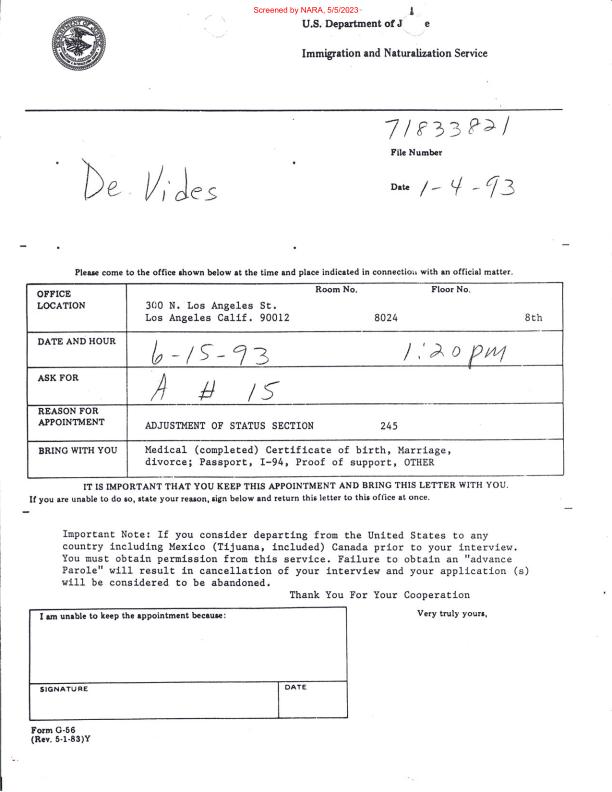 Screened by NARA, 5/5/2023
U.S. Department of J e
Immigration and Naturalization Service
71833821
File Number
De Vides
Date 1-4-93
Please come to the office shown below at the time and place indicated in connection with an official matter.
OFFICE LOCATION
Room No. Floor No.
300 N. Los Angeles St.
Los Angeles Calif. 90012 8024 8th
DATE AND HOUR 6-15-93 1:20pm
ASK FOR A # 15
REASON FOR APPOINTMENT ADJUSTMENT OF STATUS SECTION 245
BRING WITH YOU Medical (completed) Certificate of birth, Marriage,
divorce; Passport, I-94, Proof of support, OTHER
IT IS IMPORTANT THAT YOU KEEP THIS APPOINTMENT AND BRING THIS LETTER WITH YOU.
If you are unable to do so, state your reason, sign below and return this letter to this office at once.
Important Note: If you consider departing from the United States to any
country including Mexico (Tijuana, included) Canada prior to your interview.
You must obtain permission from this service. Failure to obtain an "advance
Parole" will result in cancellation of your interview and your application (s)
will be considered to be abandoned.
Thank You For Your Cooperation
I am unable to keep the appointment because:
Very truly yours,
SIGNATURE DATE
Form G-56
(Rev. 5-1-83)Y